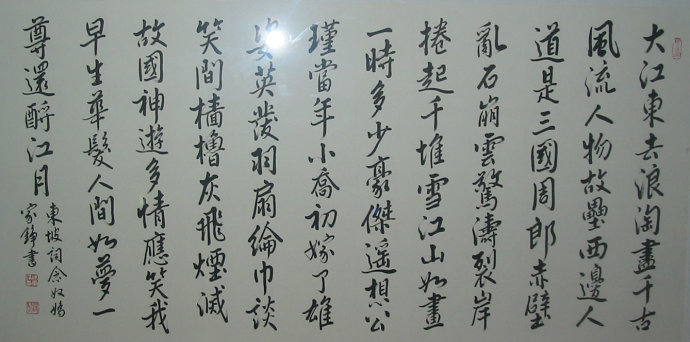 大江東去浪淘盡千古
風流人物故壘西邊人
道是三國周郎赤壁
亂石崩雲驚濤裂岸
捲起千堆雪江山如畫
一時多少豪傑遥想公
瑾當年小喬初嫁了雄
姿英發羽扇綸巾談
笑間檣櫓灰飛煙滅
故國神遊多情應笑我
早生華髮人間如夢一
尊還酹江月
東坡詞念奴嬌
家錚書